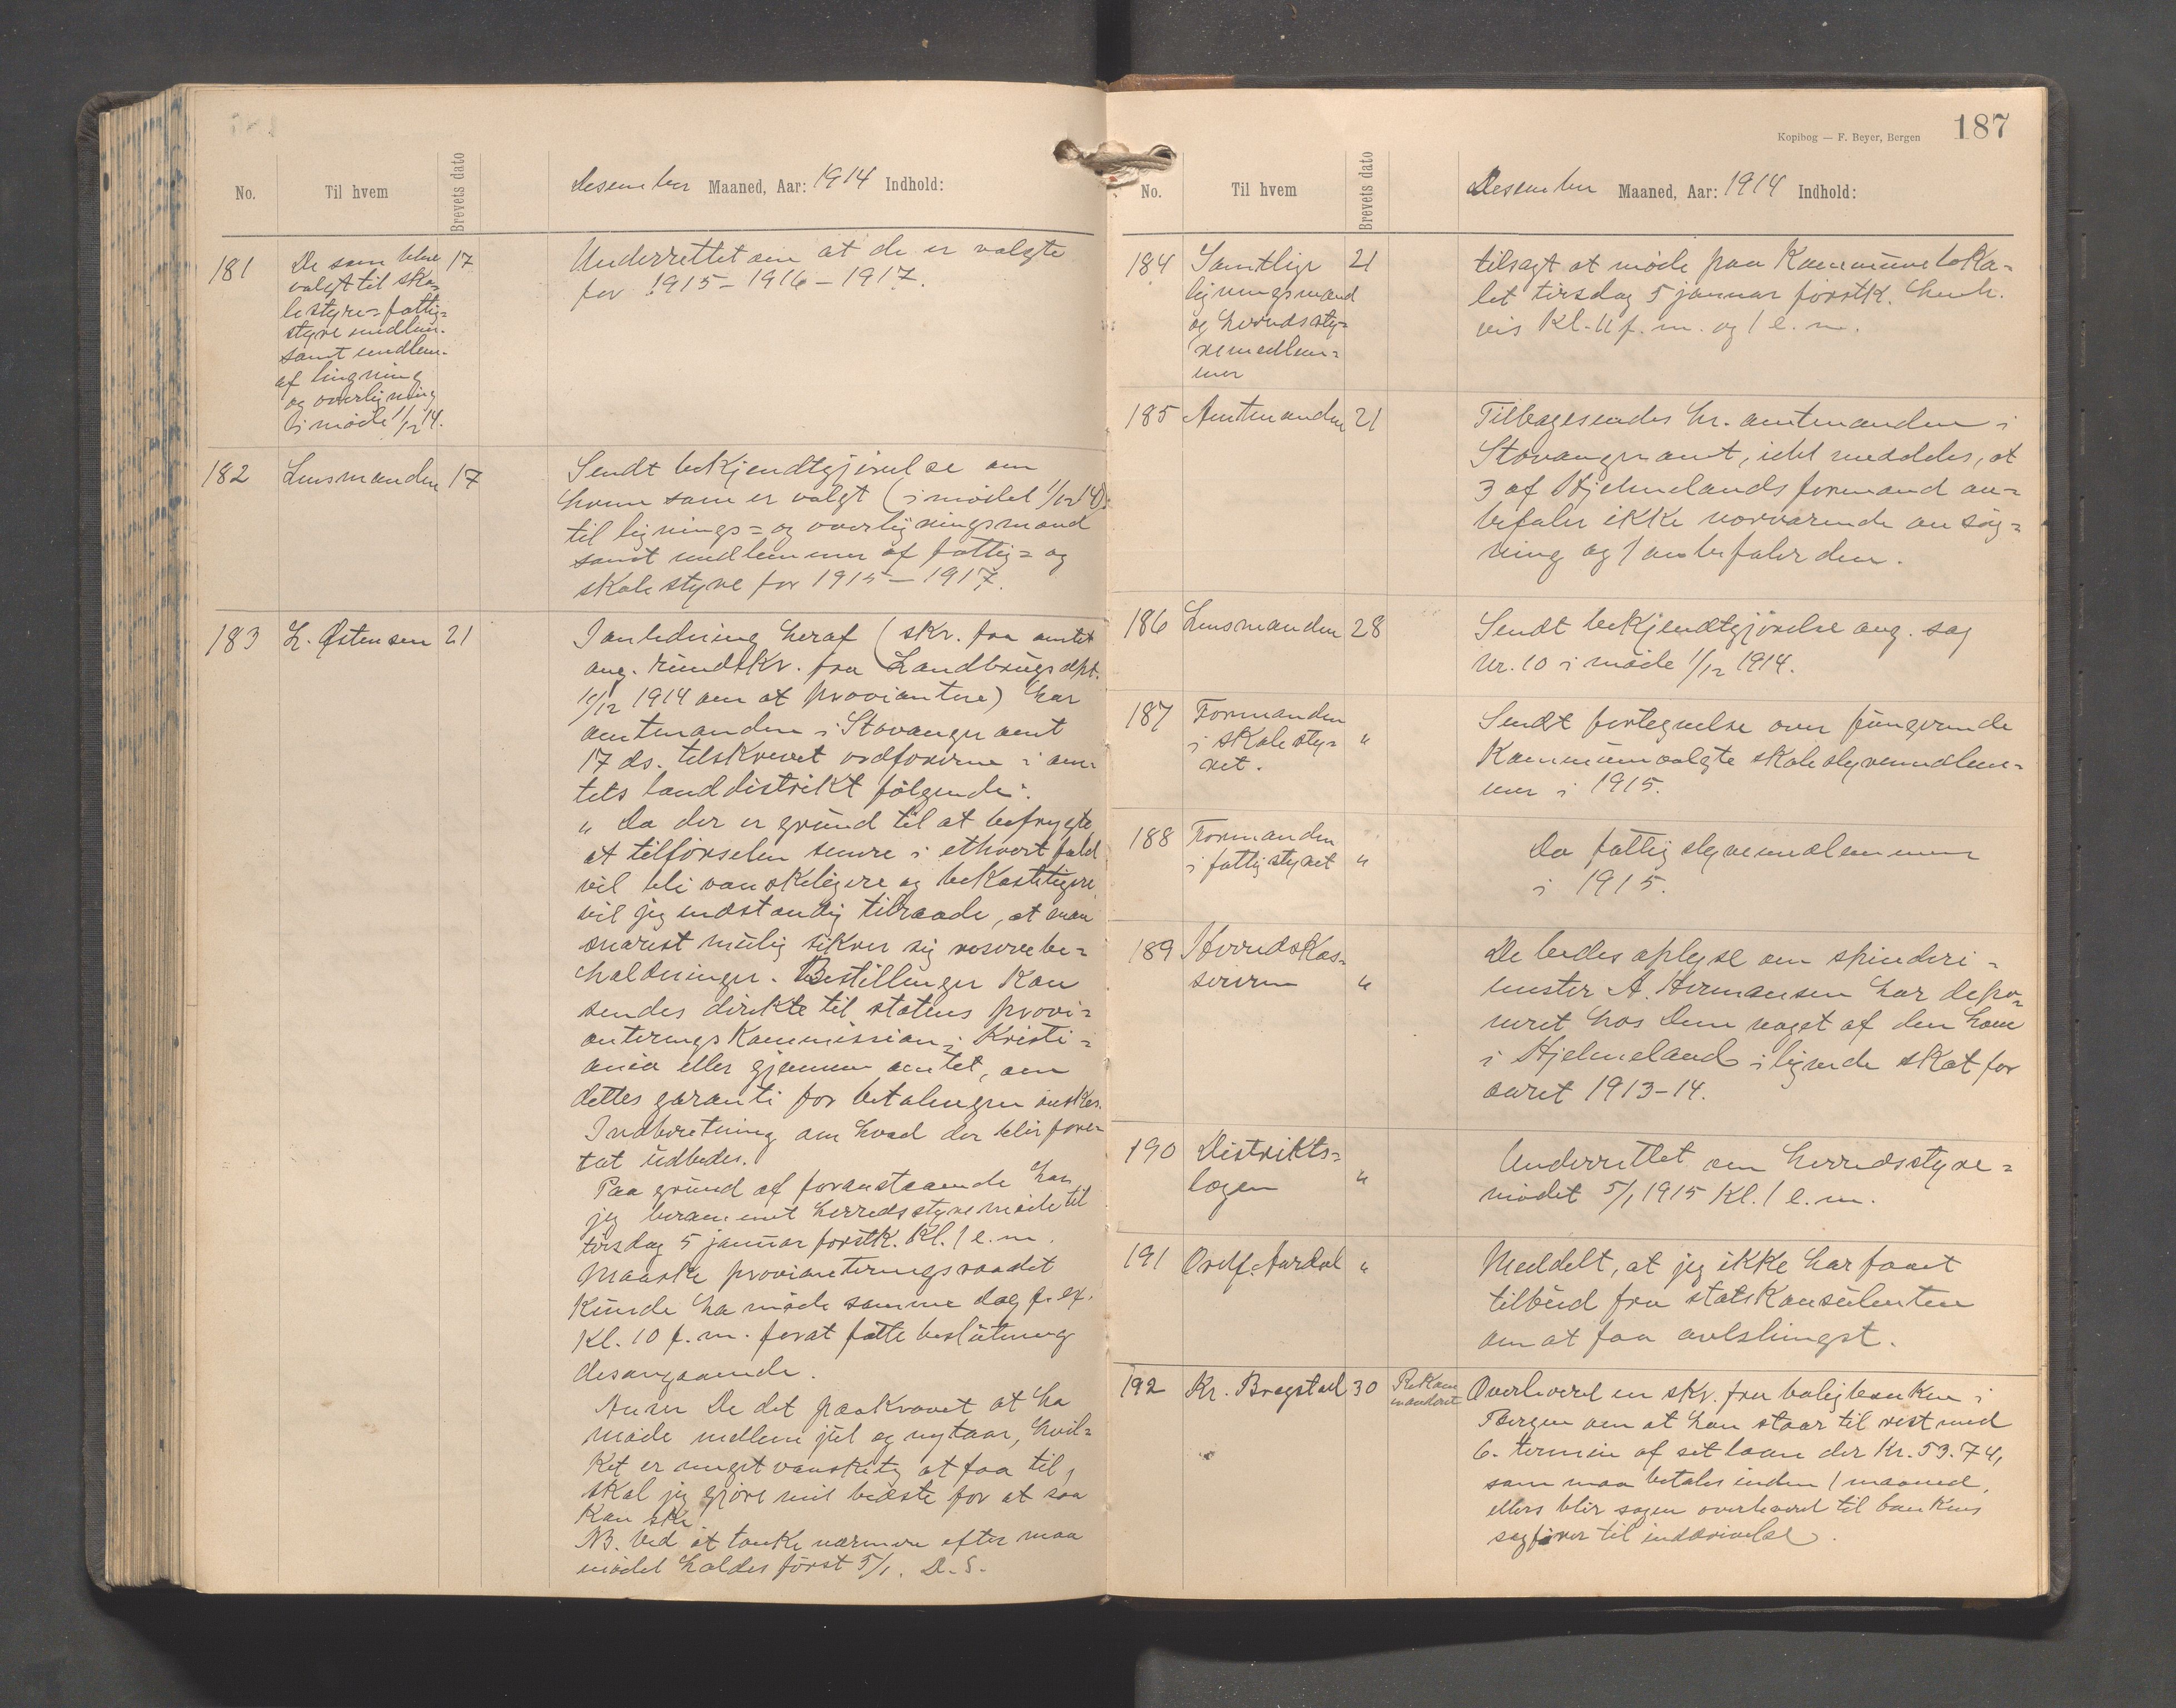 No.
Til hvem
Brevets dato
Desember Maaned, Aar: 1914 Indhold:
181
De som blev
valgt til sko-
lestyre- fattig-
styre medlem.
samt medlem.
af ligning
og overligning
i møde 1/12 14.
17
Underrettet om at de er valgte
for 1915 - 1916 - 1917.
182
Lensmanden
17
Sendt bekjendtgjørelse om
hvem som er valgt (i mødet 1/12 14)
til lignings= og overligningsmænd
samt medlemmer af fattig= og
skolestyre for 1915 - 1917.
183
L. Østensen
21
I anledning heraf (skr. fra amtet
ang. rundskr. fra Landbrugsdpt.
1914 om at proviantere) har
amtmanden i Stavanger amt
17 ds. tilskrevet ordførerne i am-
tets landdistrikt følgende:
" Da der er grund til at befrygte
at tilførselen senere i ethvert fald
vil bli vanskeligere og bekosteligere
vil jeg indstændig tilraade, at man
snarest mulig sikrer sig reservebe=
holdninger. Bestillinger kan
sendes direkte til statens provi=
anteringskommission i Kristi=
ania eller gjennem amtet, om
dettes garanti for betalingen ønskes.
Indberetning om hvad der blir fore-
tat udbedes.
Paa grund af foranstaaende har
jeg berammet herredsstyremøde til
tirsdag 5 januar førstk. Kl. 1 e.m.
Maaske provianteringsraadet
kunde ha møde samme dag f. ex.
Kl. 10 f. m. forat fatte beslutning
desangaaende.
Anser De det paakrævet at ha
møde mellem jul og nytaar, hvil=
ket er meget vanskelig at faa til,
skal jeg gjøre mit bedste for at saa
kan ske.
NB. Ved at tænke nærmere efter maa
mødet holdes først 5/1. D. S.
Kopibog — F. Beyer, Bergen
187
No.
Til hvem
Brevets dato
Desember Maaned, Aar: 1914 Indhold:
184
Samtlige
ligningsmænd
og herredssty=
remedlem=
mer
21
tilsagt at møde paa Kommuneloka=
let tirsdag 5 januar førstk. henh.
vis Kl. 11 f. m. og 1 e. m.
185
Amtmanden
21
Tilbagesendes hr. amtmanden i
Stavanger amt, idet meddeles, at
3 af Hjelmelands formænd an=
befaler ikke nærværende ansøg=
ning og 1 anbefaler den.
186
Lensmanden
28
Sendt bekjendtgjørelse ang. sag
nr. 10 i møde 1/12 1914.
187
Formanden
i skolesty=
ret.
"
Sendt fortegnelse over fungerende
Kommunevalgte skolestyremedlem=
mer i 1915.
188
Formanden
i fattigstyret
"
Do fattigstyremedlemmer
i 1915.
189
Herredskas=
sereren
"
De bedes oplyse om spinderi=
mester A. Hermansen har depo=
neret hos Dem noget af den ham
i Hjelmeland ilignede skat for
aaret 1913-14.
190
Distrikts=
lægen
"
Underrettet om herredsstyre=
mødet 5/1 1915 Kl. 1 e. m.
191
Ordf. Aardal
"
Meddelt, at jeg ikke har faaet
tilbud fra statskonsulenten
om at faa avlshingst.
192
Kr. Bragstad
30
Rekom
manderet
Overleveret en skr. fra boligbanken i
Bergen om at han staar til rest med
6. termin af sit laan der Kr. 53.74,
som maa betales inden 1 maaned,
ellers blir sagen overleveret til bankens
sagfører til inddrivelse.